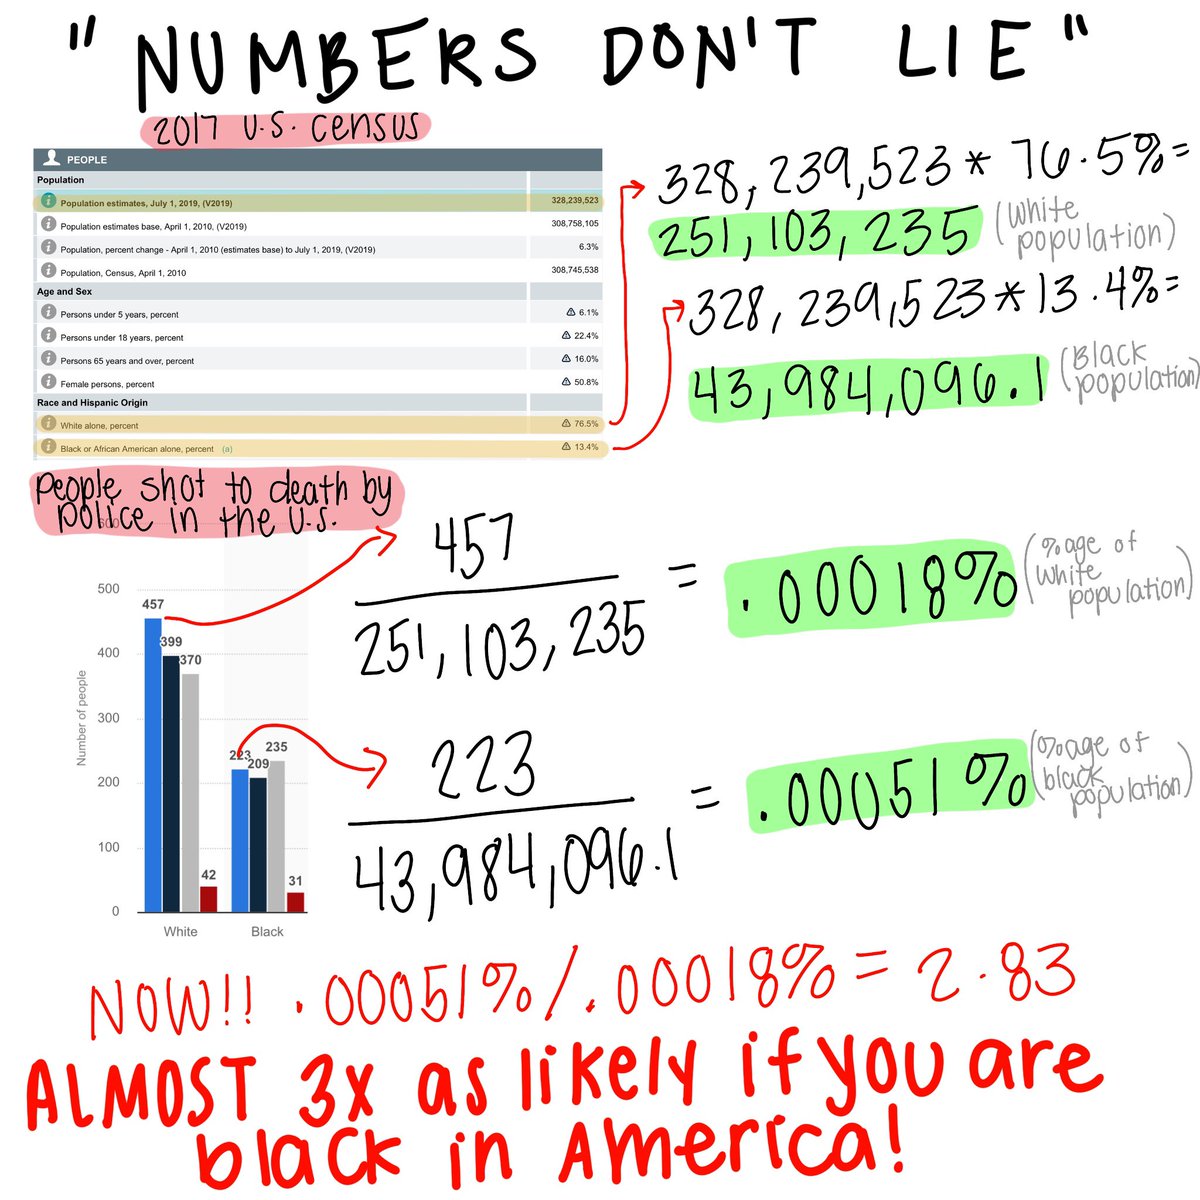 "NUMBERS DON'T LIE"
2017 U.S. census
PEOPLE
Population
Population estimates, July 1, 2019, (V2019) 328,239,523
Population estimates base, April 1, 2010, (V2019) 308,758,105
Population, percent change - April 1, 2010 (estimates base) to July 1, 2019, (V2019) 6.3%
Population, Census, April 1, 2010 308,745,538
Age and Sex
Persons under 5 years, percent 6.1%
Persons under 18 years, percent 22.4%
Persons 65 years and over, percent 16.0%
Female persons, percent 50.8%
Race and Hispanic Origin
White alone, percent 76.5%
Black or African American alone, percent (a) 13.4%
328,239,523 * 76.5% =
251,103,235 (White
population)
328,239,523 * 13.4% =
43,984,096.1 (Black
population)
people shot to death by
police in the U.S.
600
500
400
300
200
100
0
Number of people
457
399
370
42
223
209
235
31
White
Black
457
251,103,235
= .00018% (%age of
White
population)
223
43,984,096.1
= .00051% (%age of
black
population)
NOW!! .00051% / .00018% = 2.83
ALMOST 3x as likely if you are
black in America!